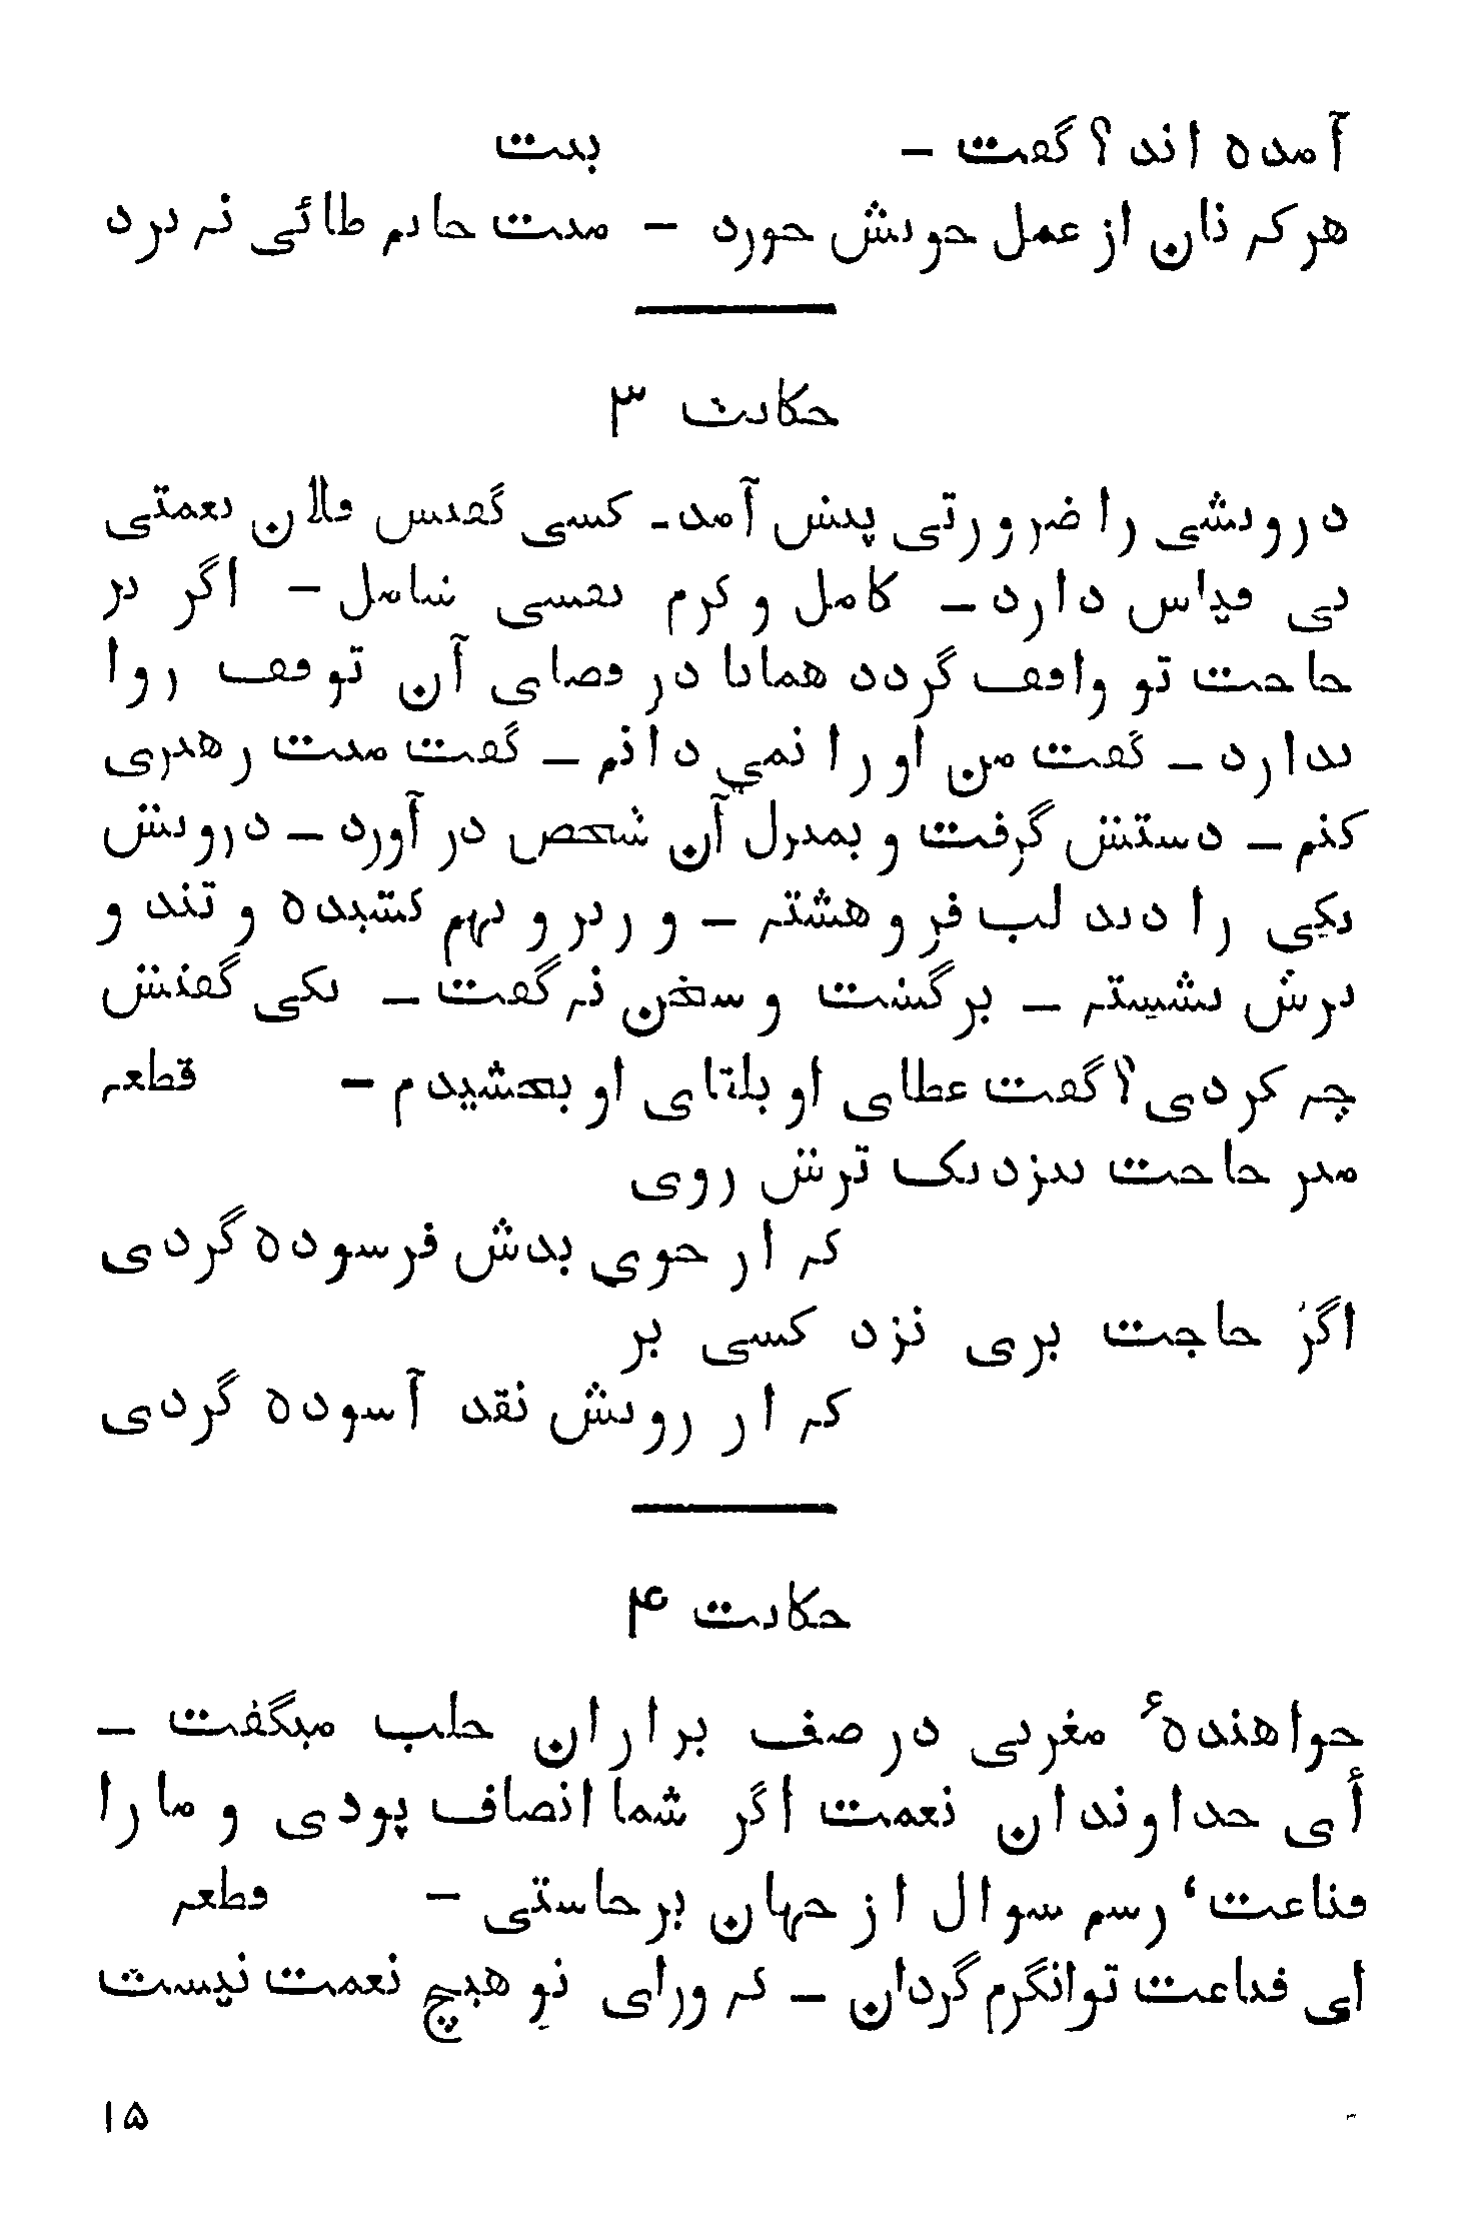 آمده اند؟ گفت – بیت
هر که نان از عمل خویش خورد – منت حاتم طائی نه برد
حکایت ۳
درویشی را ضرورتی پیش آمد – کسی گفتش فلان نعمتی
بی قیاس دارد – کامل و کرم نفسی شامل – اگر بر
حاجت تو واقف گردد همانا در قضای آن توقف روا
ندارد – گفت من او را نمی دانم – گفت منت رهبری
کنم – دستش گرفت و بمنزل آن شخص در آورد – درویش
یکی را دید لب فرو هشته – و ربر و بهم کشیده و تند و
ترش نشسته – برگشت و سخن نه گفت – یکی گفتش
چه کردی؟ گفت عطای او بلقای او بخشیدم – قطعه
مبر حاجت بنزدیک ترش روی
که از خوی بدش فرسوده گردی
اگر حاجت بری نزد کسی بر
که از رویش نقد آسوده گردی
حکایت ۴
خواهندهٔ مغربی در صف بزازان حلب میگفت –
أی خداوندان نعمت اگر شما انصاف بودی و ما را
قناعت، رسم سوال از جهان برخاستی – قطعه
ای قناعت توانگرم گردان – که ورای تو هیچ نعمت نیست
۱۵